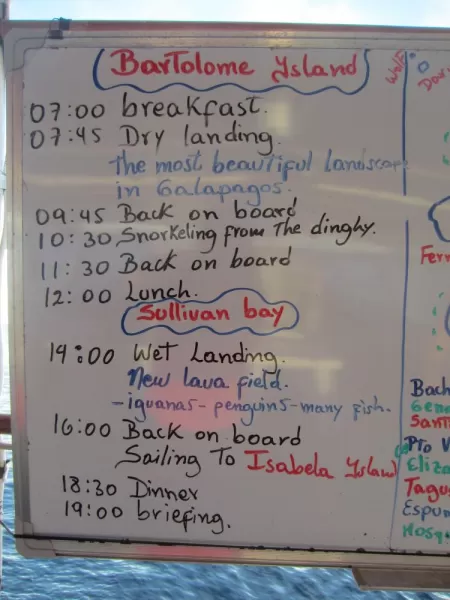 BarTolome Island
07:00 breakfast.
07:45 Dry landing.
the most beautiful landscape
in Galapagos.
09:45 Back on board
10:30 Snorkeling from The dinghy.
11:30 Back on board
12:00 Lunch.
Sullivan bay
14:00 Wet Landing.
New lava field.
-iguanas- penguins-many fish.
16:00 Back on board
Sailing To Isabela Island
18:30 Dinner
19:00 briefing.
Wolf
Dar
Fern
Bach
Gene
Sant
Pto V
Eliza
Tagu
Espum
Mosq